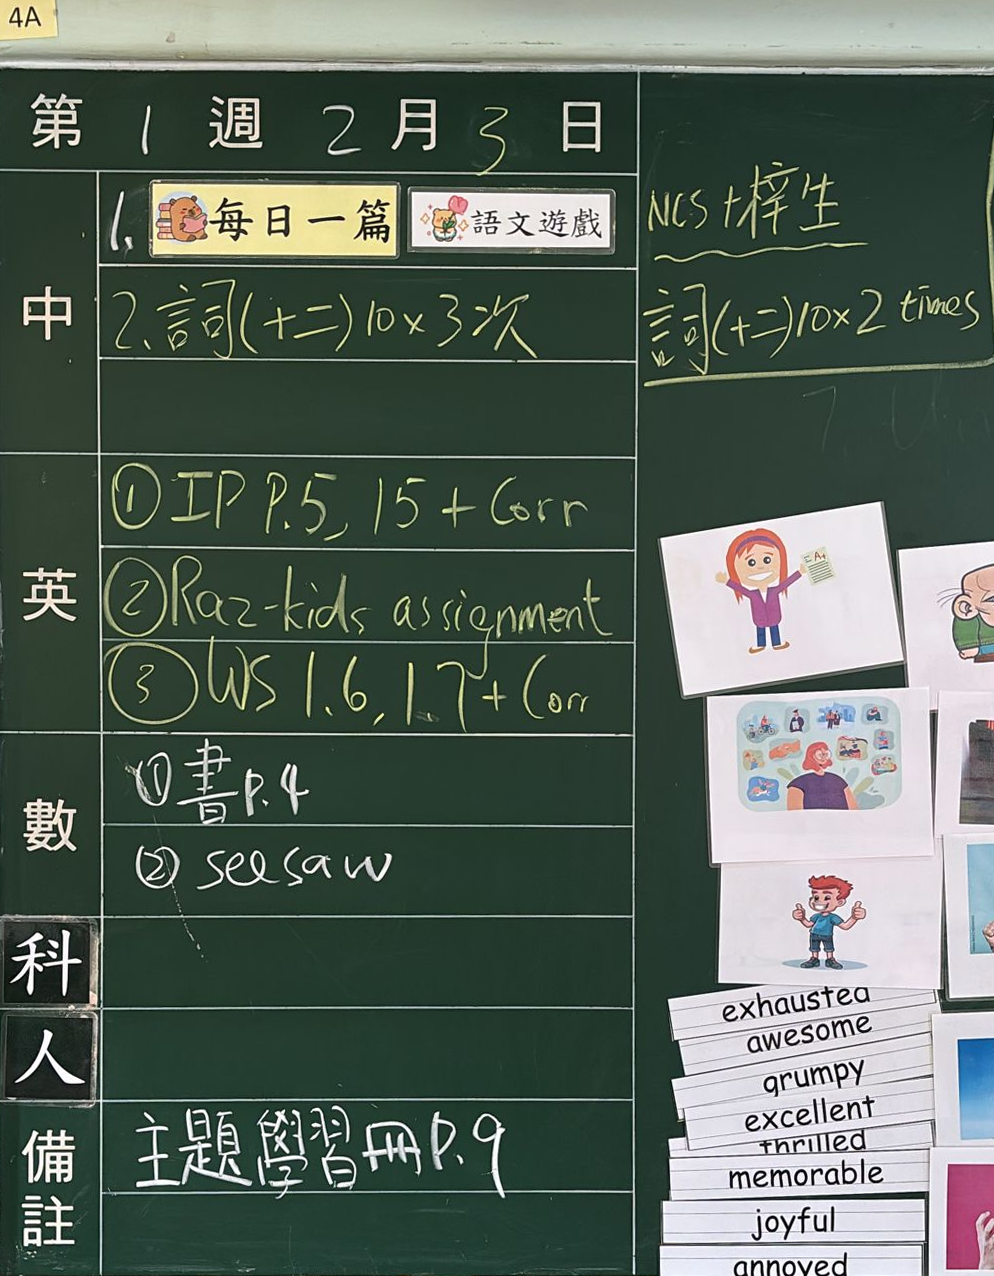 4A
第 1 週 2 月 3 日
中
1. 每日一篇 語文遊戲
2. 詞(十二)10×3次
NCS+梓生
詞(十二)10×2 times
英
① IP P.5, 15 + Corr
② Raz-kids assignment
③ WS 1.6, 1.7 + Corr
數
① 書P.4
② seesaw
科
人
備註
主題學習冊P.9
A+
exhausted
awesome
grumpy
excellent
thrilled
memorable
joyful
annoyed